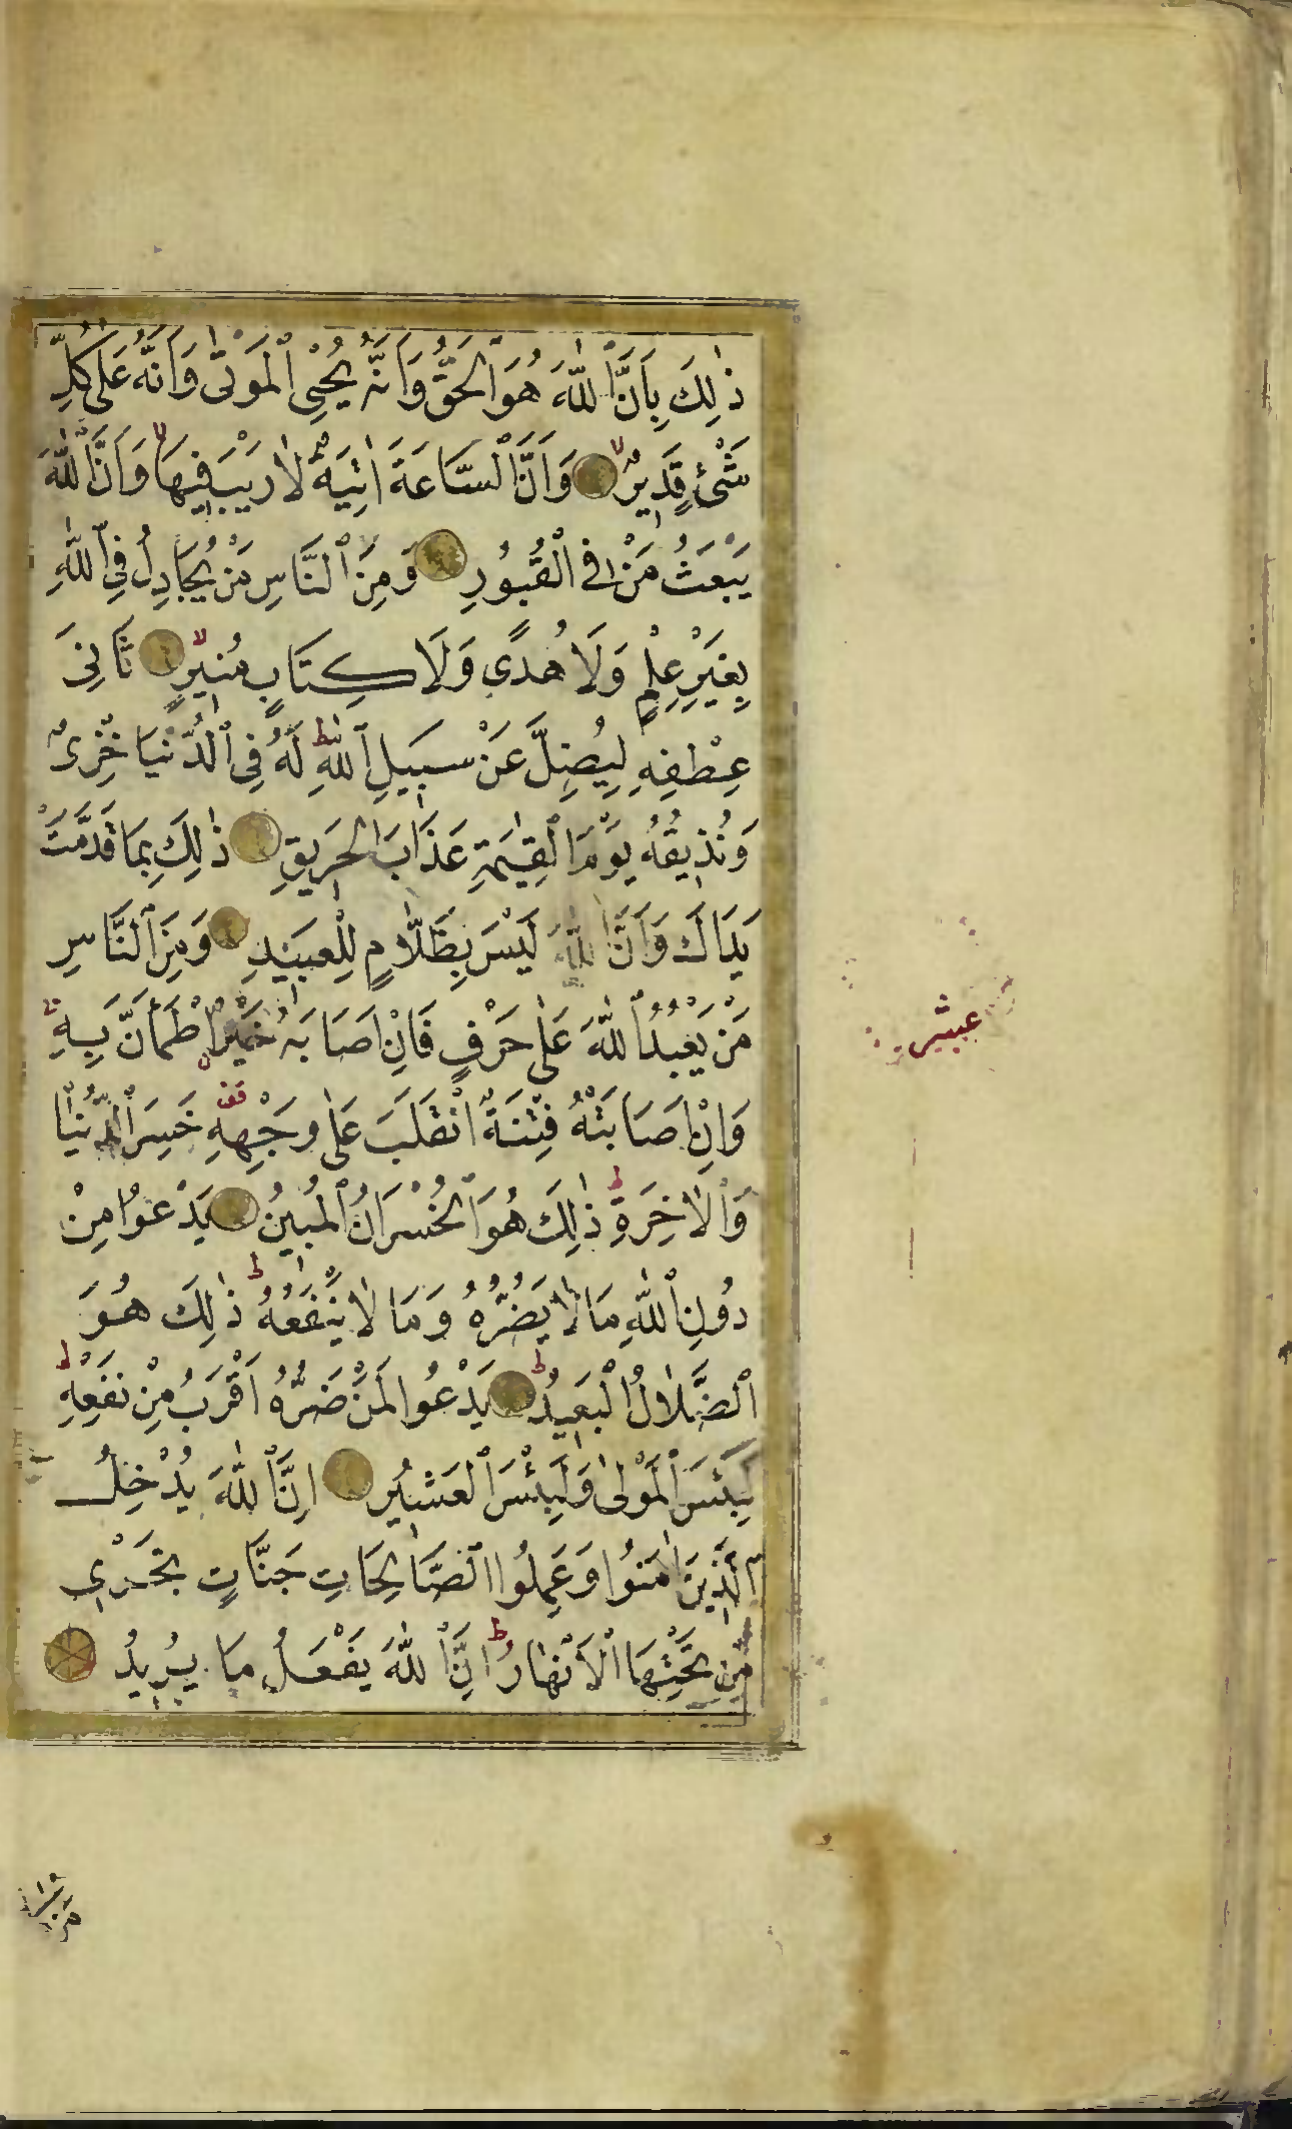 ذٰلِكَ بِاَنَّ اللّٰهَ هُوَ الْحَقُّ وَاَنَّهُ يُحْيِي الْمَوْتٰى وَاَنَّهُ عَلٰى كُلِّ
شَيْءٍ قَدِيرٌ وَاَنَّ السَّاعَةَ اٰتِيَةٌ لَا رَيْبَ فِيهَا وَاَنَّ اللّٰهَ
يَبْعَثُ مَنْ فِي الْقُبُورِ وَمِنَ النَّاسِ مَنْ يُجَادِلُ فِي اللّٰهِ
بِغَيْرِ عِلْمٍ وَلَا هُدًى وَلَا كِتَابٍ مُنِيرٍ ثَانِيَ
عِطْفِهِ لِيُضِلَّ عَنْ سَبِيلِ اللّٰهِ ط لَهُ فِي الدُّنْيَا خِزْيٌ
وَنُذِيقُهُ يَوْمَ الْقِيٰمَةِ عَذَابَ الْحَرِيقِ ذٰلِكَ بِمَا قَدَّمَتْ
يَدَاكَ وَاَنَّ اللّٰهَ لَيْسَ بِظَلَّامٍ لِلْعَبِيدِ وَمِنَ النَّاسِ
مَنْ يَعْبُدُ اللّٰهَ عَلٰى حَرْفٍ فَاِنْ اَصَابَهُ خَيْرٌ اطْمَاَنَّ بِهِ
عشر
وَاِنْ اَصَابَتْهُ فِتْنَةٌ انْقَلَبَ عَلٰى وَجْهِهِ قف خَسِرَ الدُّنْيَا
وَالْاٰخِرَةَ ط ذٰلِكَ هُوَ الْخُسْرَانُ الْمُبِينُ يَدْعُوا مِنْ
دُونِ اللّٰهِ مَا لَا يَضُرُّهُ وَمَا لَا يَنْفَعُهُ ط ذٰلِكَ هُوَ
الضَّلَالُ الْبَعِيدُ ط يَدْعُوا لَمَنْ ضَرُّهُ اَقْرَبُ مِنْ نَفْعِهِ ط
لَبِئْسَ الْمَوْلٰى وَلَبِئْسَ الْعَشِيرُ اِنَّ اللّٰهَ يُدْخِلُ
الَّذِينَ اٰمَنُوا وَعَمِلُوا الصَّالِحَاتِ جَنَّاتٍ تَجْرِي
مِنْ تَحْتِهَا الْاَنْهَارُ ط اِنَّ اللّٰهَ يَفْعَلُ مَا يُرِيدُ